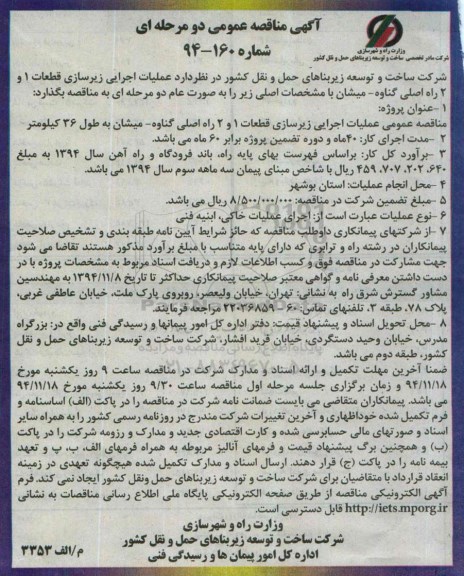 آگهی مناقصه عمومی دو مرحله ای
شماره ۱۶۰-۹۴
وزارت راه و شهرسازی
شرکت مادر تخصصی ساخت و توسعه زیربناهای حمل و نقل کشور
شرکت ساخت و توسعه زیربناهای حمل و نقل کشور در نظردارد عملیات اجرایی زیرسازی قطعات ۱ و
۲ راه اصلی گناوه- میشان با مشخصات اصلی زیر را به صورت عام دو مرحله ای به مناقصه بگذارد:
۱-عنوان پروژه:
مناقصه عمومی عملیات اجرایی زیرسازی قطعات ۱ و ۲ راه اصلی گناوه- میشان به طول ۳۶ کیلومتر
۲ -مدت اجرای کار: ۴۰ماه و دوره تضمین پروژه برابر ۶۰ ماه می باشد.
۳ -برآورد کل کار: براساس فهرست بهای پایه راه، باند فرودگاه و راه آهن سال ۱۳۹۴ به مبلغ
۴۵۹،۷۰۷،۲۰۲،۶۴۰ ریال با شاخص مبنای پیمان سه ماهه سوم سال ۱۳۹۴ می باشد.
۴ -محل انجام عملیات: استان بوشهر
۵ -مبلغ تضمین شرکت در مناقصه: ۸/۵۰۰/۰۰۰/۰۰۰ ریال می باشد.
۶ -نوع عملیات عبارت است از: اجرای عملیات خاکی، ابنیه فنی
۷ -از شرکتهای پیمانکاری داوطلب مناقصه که حائز شرایط آیین نامه طبقه بندی و تشخیص صلاحیت
پیمانکاران در رشته راه و ترابری که دارای پایه متناسب با مبلغ برآورد مذکور هستند تقاضا می شود
جهت مشارکت در مناقصه فوق و کسب اطلاعات لازم و دریافت اسناد مربوط به مشخصات پروژه با در
دست داشتن معرفی نامه و گواهی معتبر صلاحیت پیمانکاری حداکثر تا تاریخ ۱۳۹۴/۱۱/۸ به مهندسین
مشاور گسترش شرق راه به نشانی: تهران، خیابان ولیعصر، روبروی پارک ملت، خیابان عاطفی غربی،
پلاک ۷۸، طبقه ۳، تلفنهای تماس: ۶۰ - ۲۲۰۳۶۸۵۹ مراجعه فرمایند.
۸ -محل تحویل اسناد و پیشنهاد قیمت: دفتر اداره کل امور پیمانها و رسیدگی فنی واقع در: بزرگراه
مدرس، خیابان وحید دستگردی، خیابان فرید افشار، شرکت ساخت و توسعه زیربناهای حمل و نقل
کشور، طبقه دوم می باشد.
ضمنا آخرین مهلت تکمیل و ارائه اسناد و مدارک شرکت در مناقصه ساعت ۹ روز یکشنبه مورخ
۹۴/۱۱/۱۸ و زمان برگزاری جلسه مرحله اول مناقصه ساعت ۹/۳۰ روز یکشنبه مورخ ۹۴/۱۱/۱۸
می باشد. پیمانکاران متقاضی می بایست ضمانت نامه شرکت در مناقصه را در پاکت (الف) اساسنامه و
فرم تکمیل شده خوداظهاری و آخرین تغییرات شرکت مندرج در روزنامه رسمی کشور را به همراه سایر
اسناد و صورتهای مالی حسابرسی شده و کارت اقتصادی جدید و مدارک و رزومه شرکت را در پاکت
(ب) و همچنین برگ پیشنهاد قیمت و فرمهای آنالیز مربوطه به همراه فرمهای الف، ب، پ و تعهد
بیمه نامه را در پاکت (ج) قرار دهند. ارسال اسناد و مدارک تکمیل شده هیچگونه تعهدی در زمینه
انعقاد قرارداد با متقاضیان برای شرکت ساخت و توسعه زیربناهای حمل ونقل کشور ایجاد نمی کند. فرم
آگهی الکترونیکی مناقصه از طریق صفحه الکترونیکی پایگاه ملی اطلاع رسانی مناقصات به نشانی
http://iets.mporg.ir قابل دسترسی است.
وزارت راه و شهرسازی
شرکت ساخت و توسعه زیربناهای حمل و نقل کشور
اداره کل امور پیمان ها و رسیدگی فنی
م/الف ۳۳۵۳